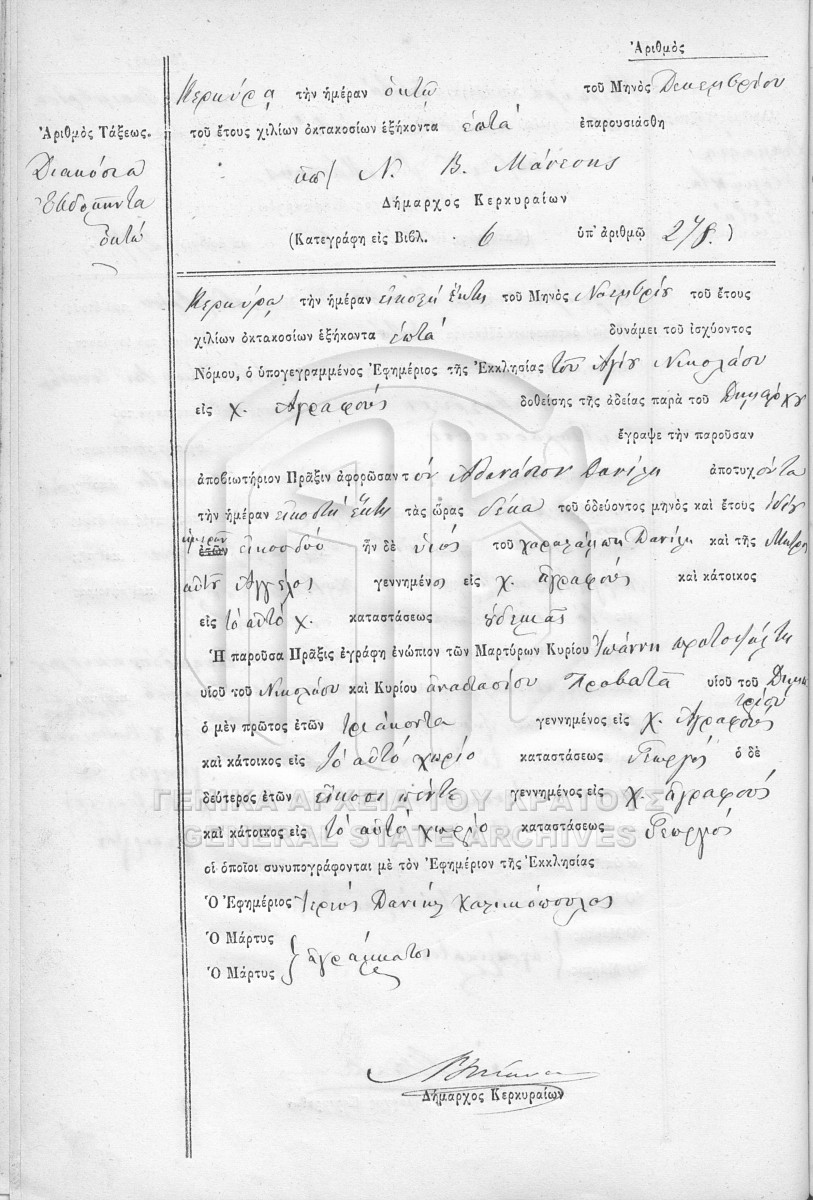 Ἀριθμὸς
Κερκύρᾳ τὴν ἡμέραν ὀκτὼ τοῦ Μηνὸς Δεκεμβρίου
Ἀριθμὸς Τάξεως. τοῦ ἔτους χιλίων ὀκτακοσίων ἑξήκοντα ἑπτά ἐπαρουσιάσθη
Διακόσια
Ἑβδομήντα
ὀκτώ
Ν. Β. Μάνεσης
Δήμαρχος Κερκυραίων
(Κατεγράφη εἰς Βιβλ. 6 ὑπ' ἀριθμῷ 278.)
Κερκύρᾳ τὴν ἡμέραν εἰκοστῇ ἕκτῃ τοῦ Μηνὸς Νοεμβρίου τοῦ ἔτους
χιλίων ὀκτακοσίων ἑξήκοντα ἑπτά δυνάμει τοῦ ἰσχύοντος
Νόμου, ὁ ὑπογεγραμμένος Ἐφημέριος τῆς Ἐκκλησίας τοῦ Ἁγίου Νικολάου
εἰς χ. Ἀγραφούς δοθείσης τῆς ἀδείας παρὰ τοῦ Δημάρχου
ἔγραψε τὴν παροῦσαν
ἀποβιωτήριον Πρᾶξιν ἀφορῶσαν τόν Ἀθανάσιον Δανίλη ἀποτυχόντα
τὴν ἡμέραν εἰκοστῇ ἕκτῃ τὰς ὥρας δέκα τοῦ ὁδεύοντος μηνὸς καὶ ἔτους
ἡμερῶν
ἐτῶν εἴκοσι δύο ἦν δὲ υἱός τοῦ Χαραλάμπη Δανίλη καὶ τῆς Μητρός
αὐτοῦ Ἀγγέλος γεννημένος εἰς χ. ἀγραφούς καὶ κάτοικος
εἰς τό αὐτό χ. καταστάσεως οὐδεμιᾶς
Ἡ παροῦσα Πρᾶξις ἐγράφη ἐνώπιον τῶν Μαρτύρων Κυρίου Ἰωάννη πρωτοψάλτη
υἱοῦ τοῦ Νικολάου καὶ Κυρίου ἀναστασίου Προβατᾶ υἱοῦ τοῦ Δημη
τρίου
ὁ μὲν πρῶτος ἐτῶν τριάκοντα γεννημένος εἰς χ. Ἀγραφούς
καὶ κάτοικος εἰς τό αὐτό χωρίο καταστάσεως Γεωργός ὁ δὲ
δεύτερος ἐτῶν εἴκοσι πέντε γεννημένος εἰς χ. ἀγραφούς
καὶ κάτοικος εἰς τό αὐτό χωρίο καταστάσεως Γεωργός
οἱ ὁποῖοι συνυπογράφονται μὲ τὸν Ἐφημέριον τῆς Ἐκκλησίας
Ὁ Ἐφημέριος Ἱερεύς Δανιήλ Χαλικιόπουλος
Ὁ Μάρτυς
ἀγράμματος
Ὁ Μάρτυς
Δήμαρχος Κερκυραίων
ΓΕΝΙΚΑ ΑΡΧΕΙΑ ΤΟΥ ΚΡΑΤΟΥΣ
GENERAL STATE ARCHIVES